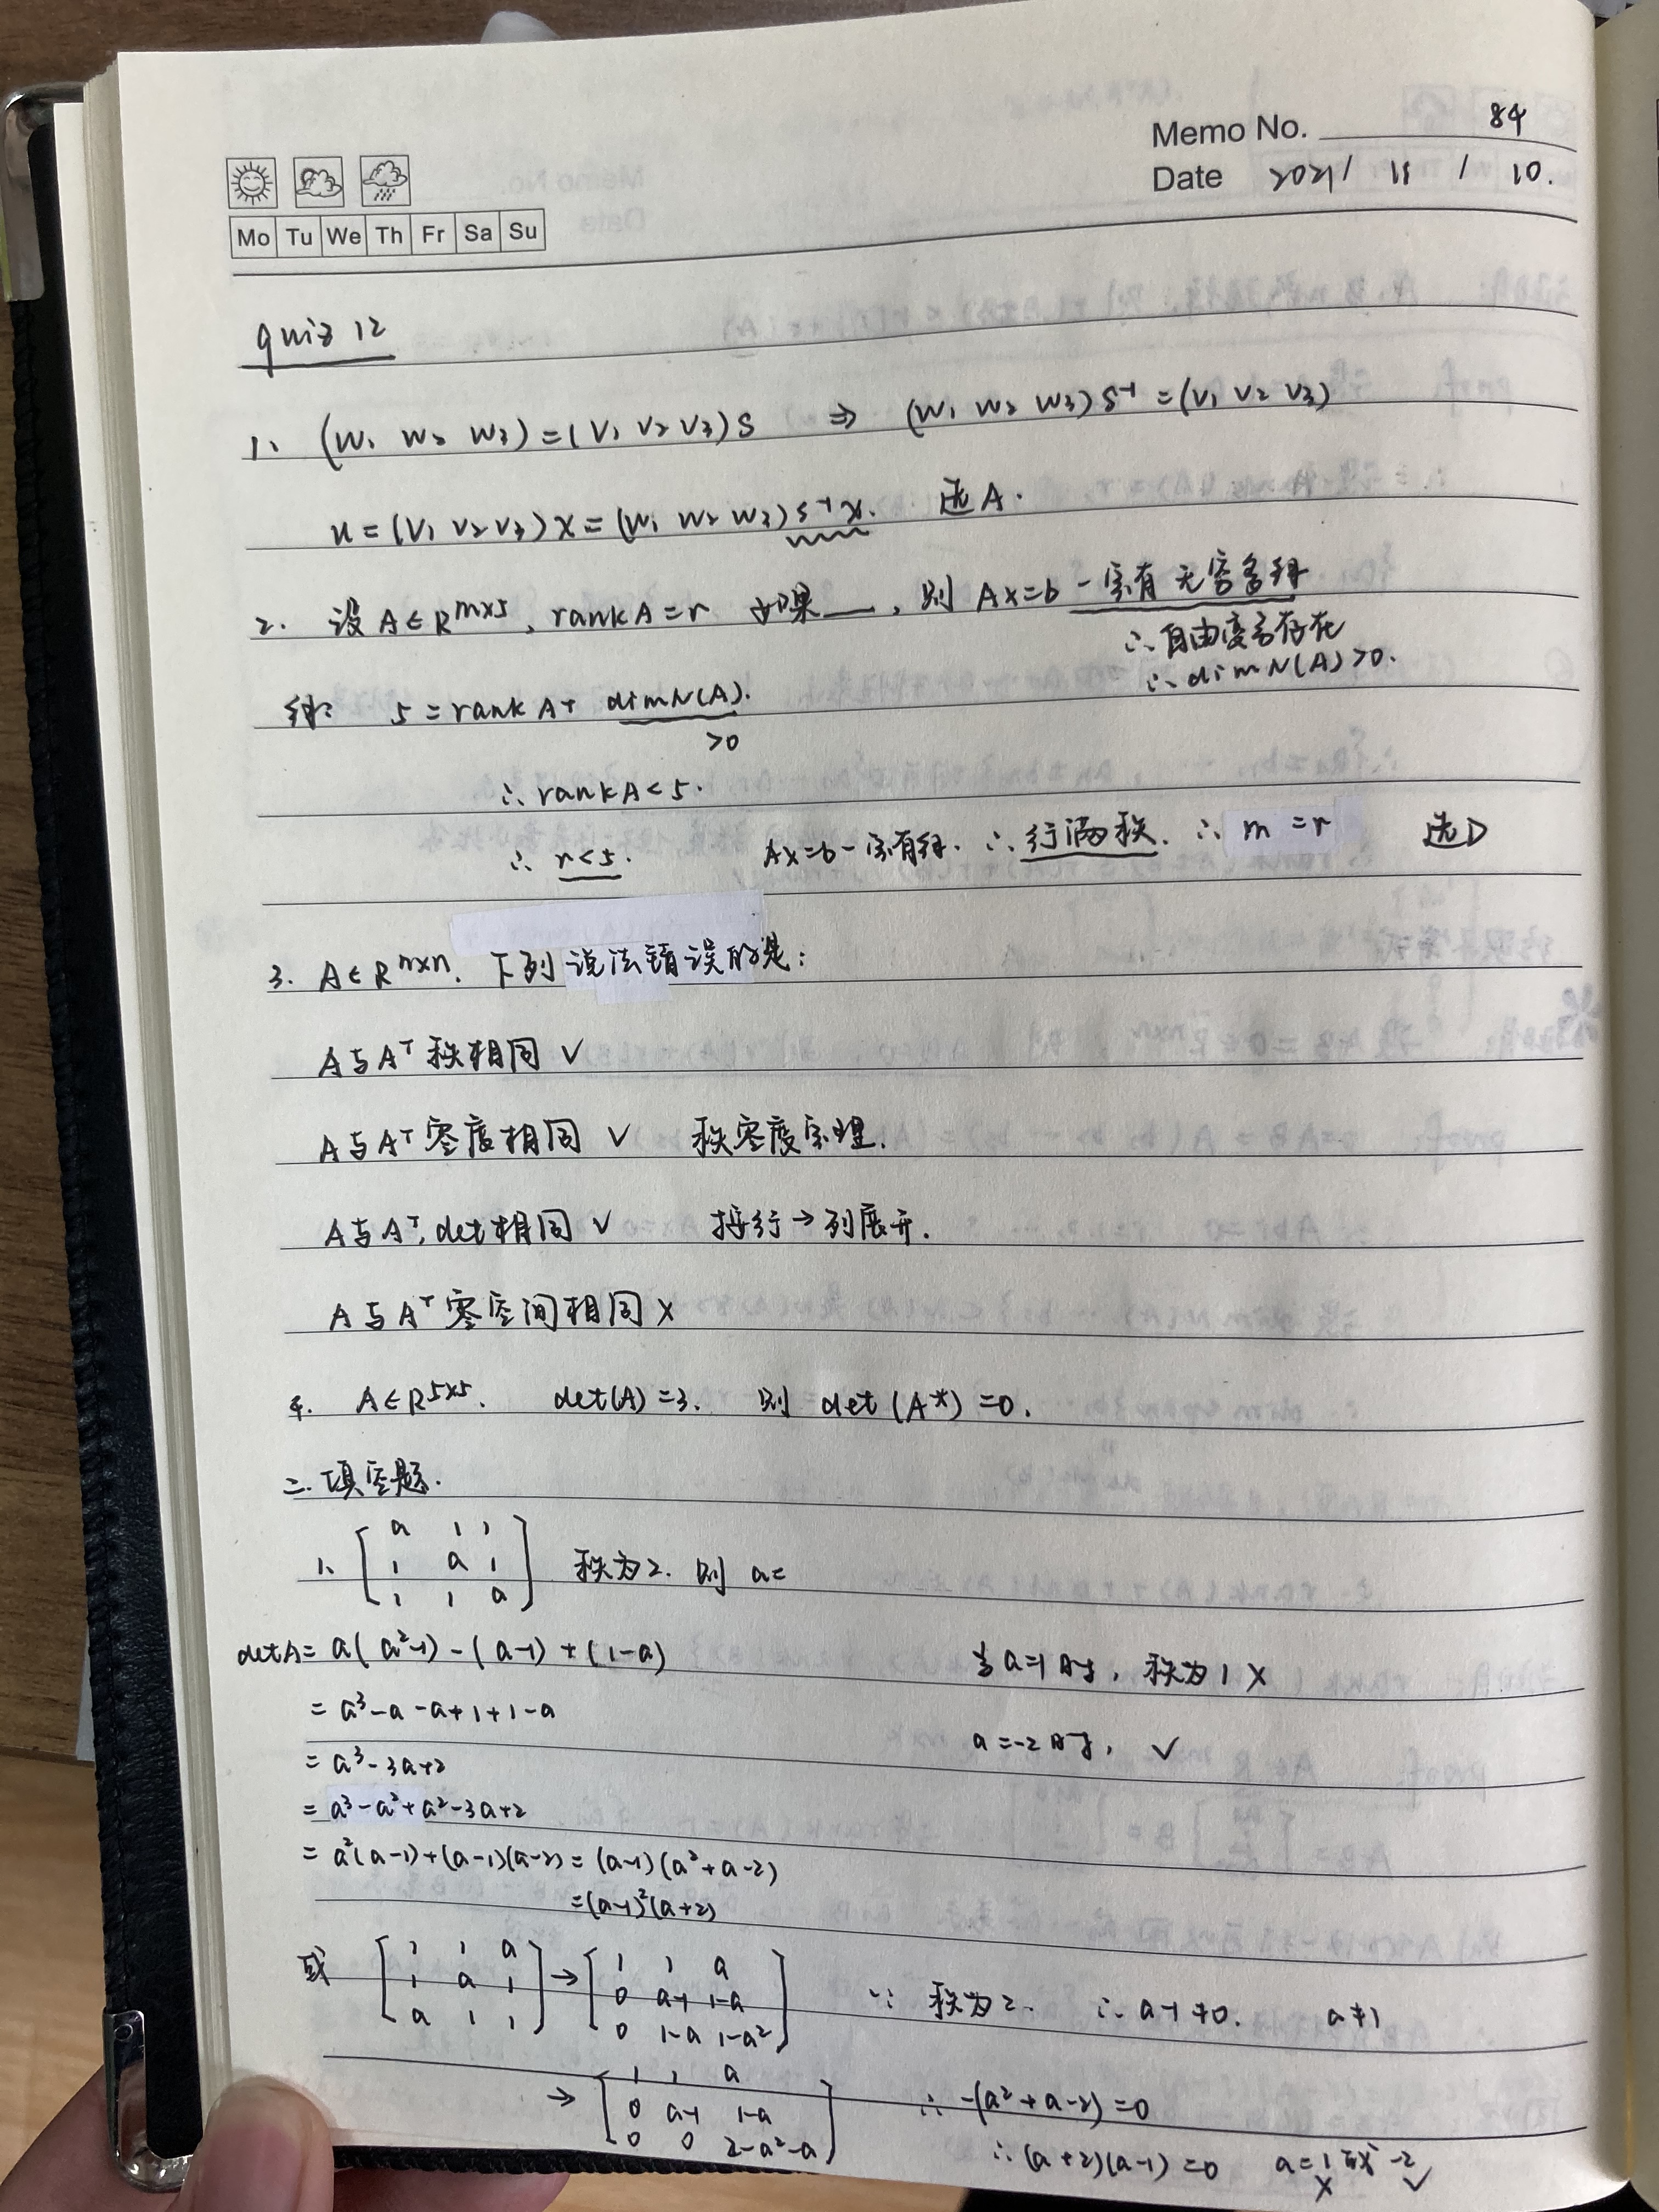 Memo No. 84
Date 2021 / 11 / 10.
Mo Tu We Th Fr Sa Su
quiz 12
1、 (w₁ w₂ w₃) = (v₁ v₂ v₃) S ⇒ (w₁ w₂ w₃) S⁻¹ = (v₁ v₂ v₃)
u = (v₁ v₂ v₃) x = (w₁ w₂ w₃) S⁻¹x. 选A.
2. 设 A∈R^{m×5}, rankA = r 如果__, 则 Ax=b 一定有无穷多解
∴自由变量存在
∴ dim N(A) >0.
解: 5 = rank A + dim N(A).
>0
∴ rankA < 5.
∴ r<5. Ax=b 一定有解. ∴ 行满秩. ∴ m = r 选D
3. A∈R^{n×n}. 下列说法错误的是:
A与Aᵀ 秩相同 ✓
A与Aᵀ 零度相同 ✓ 秩零度定理.
A与Aᵀ, det相同 ✓ 按行→列展开.
A与Aᵀ 零空间相同 ×
4. A∈R^{5×5}. det(A) = 3. 则 det (A*) = 0.
二. 填空题.
1、 [a 1 1
1 a 1
1 1 a] 秩为2. 则 a=
detA = a(a²-1) - (a-1) + (1-a) 当a=1时, 秩为1 ×
= a³-a-a+1+1-a
a=-2时, ✓
= a³-3a+2
= a³-a²+a²-3a+2
= a²(a-1)+(a-1)(a-2) = (a-1)(a²+a-2)
=(a-1)²(a+2)
或 [1 1 a
1 a 1
a 1 1] → [1 1 a
0 a-1 1-a
0 1-a 1-a²] ∵ 秩为2. ∴ a-1≠0. a≠1
→ [1 1 a
0 a-1 1-a
0 0 2-a²-a] ∴ -(a²+a-2)=0
∴ (a+2)(a-1)=0 a=1或-2
× ✓